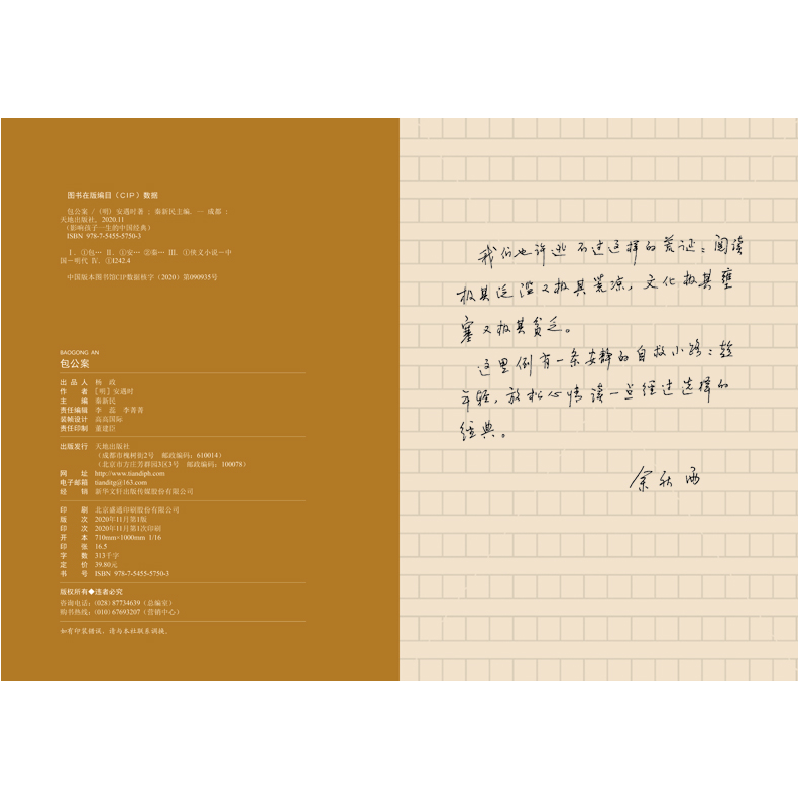 图书在版编目（CIP）数据
包公案 /（明）安遇时著；秦新民主编. — 成都：
天地出版社，2020.11
（影响孩子一生的中国经典）
ISBN 978-7-5455-5750-3
Ⅰ. ①包… Ⅱ. ①安… ②秦… Ⅲ. ①侠义小说－中
国－明代 Ⅳ. ①I242.4
中国版本图书馆CIP数据核字（2020）第090935号
BAOGONG AN
包公案
出品人 杨 政
作者 ［明］安遇时
主编 秦新民
责任编辑 李 蕊 李菁菁
装帧设计 高高国际
责任印制 董建臣
出版发行 天地出版社
（成都市槐树街2号 邮政编码：610014）
（北京市方庄芳群园3区3号 邮政编码：100078）
网址 http://www.tiandiph.com
电子邮箱 tianditg@163.com
经销 新华文轩出版传媒股份有限公司
印刷 北京盛通印刷股份有限公司
版次 2020年11月第1版
印次 2020年11月第1次印刷
开本 710mm×1000mm 1/16
印张 16.5
字数 313千字
定价 39.80元
书号 ISBN 978-7-5455-5750-3
版权所有◆违者必究
咨询电话：（028）87734639（总编室）
购书热线：（010）67693207（营销中心）
如有印装错误，请与本社联系调换。
我们也许逃不过这样的荒诞：阅读
极其泛滥又极其荒凉，文化极其壅
塞又极其贫乏。
这里倒有一条安静的自救小路：趁
年轻，放松心情读一点经过选择的
经典。
余秋雨